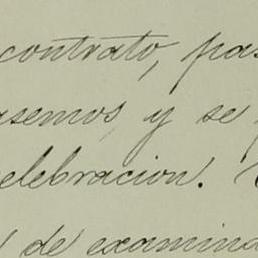 contrato, pas
asemos y se
elebracion.
de examina